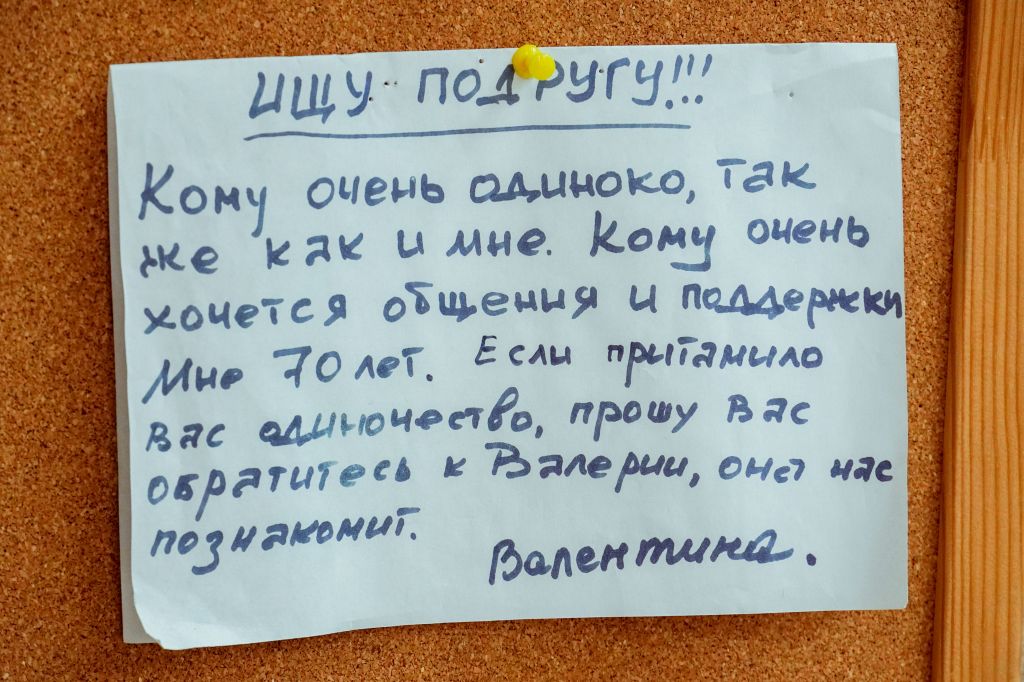 ИЩУ ПОДРУГУ!!!
Кому очень одиноко, так
же как и мне. Кому очень
хочется общения и поддержки
Мне 70 лет. Если притамило
вас одиночество, прошу вас
обратитесь к Валерии, она нас
познакомит.
Валентина.